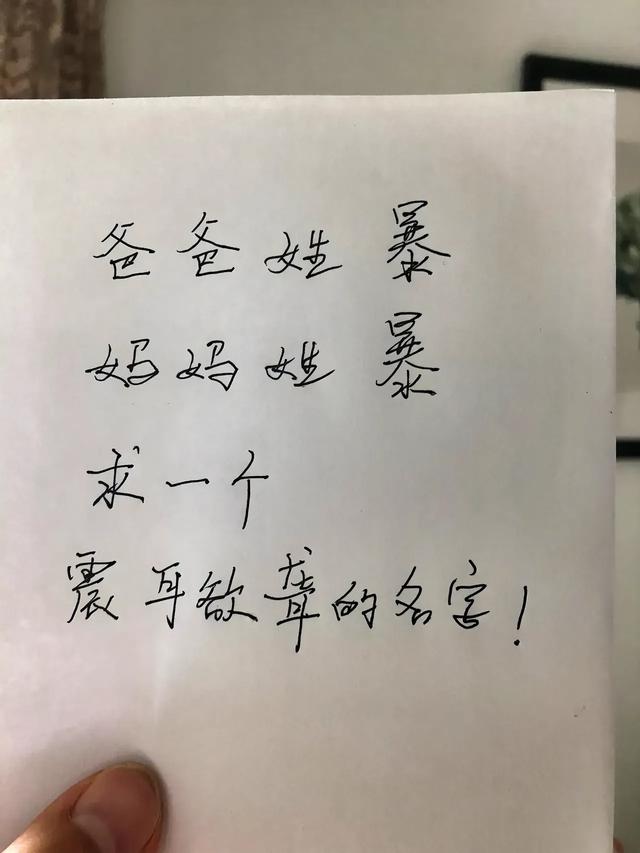 爸爸姓暴
妈妈姓暴
求一个
震耳欲聋的名字！